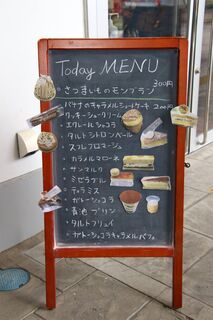 Today MENU
さつまいものモンブラン 300円
バナナのキャラメルショートケーキ 200円
クッキーシュークリーム
エクレールショコラ
タルトシトロンベール
スフレフロマージュ
カラメルマローネ
サンマルク
ミゼラブル
ティラミス
ガトーショコラ
プリン
タルトフリュイ
ガトーショコラキャラメルパフェ